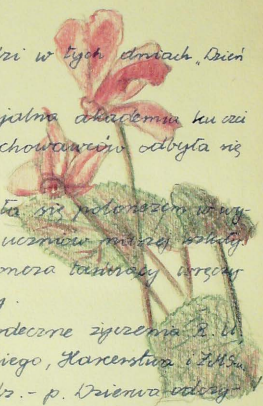 dzi w tych dniach „Dzień
jalna akademia ku czci
chowawców odbyła się
ła się polonezem w wy-
uczniów naszej szkoły.
wręczy
deczne życzenia R. U
kiego, Harcerstwa i ZMS
dz. - p. Dzierwa odczy-